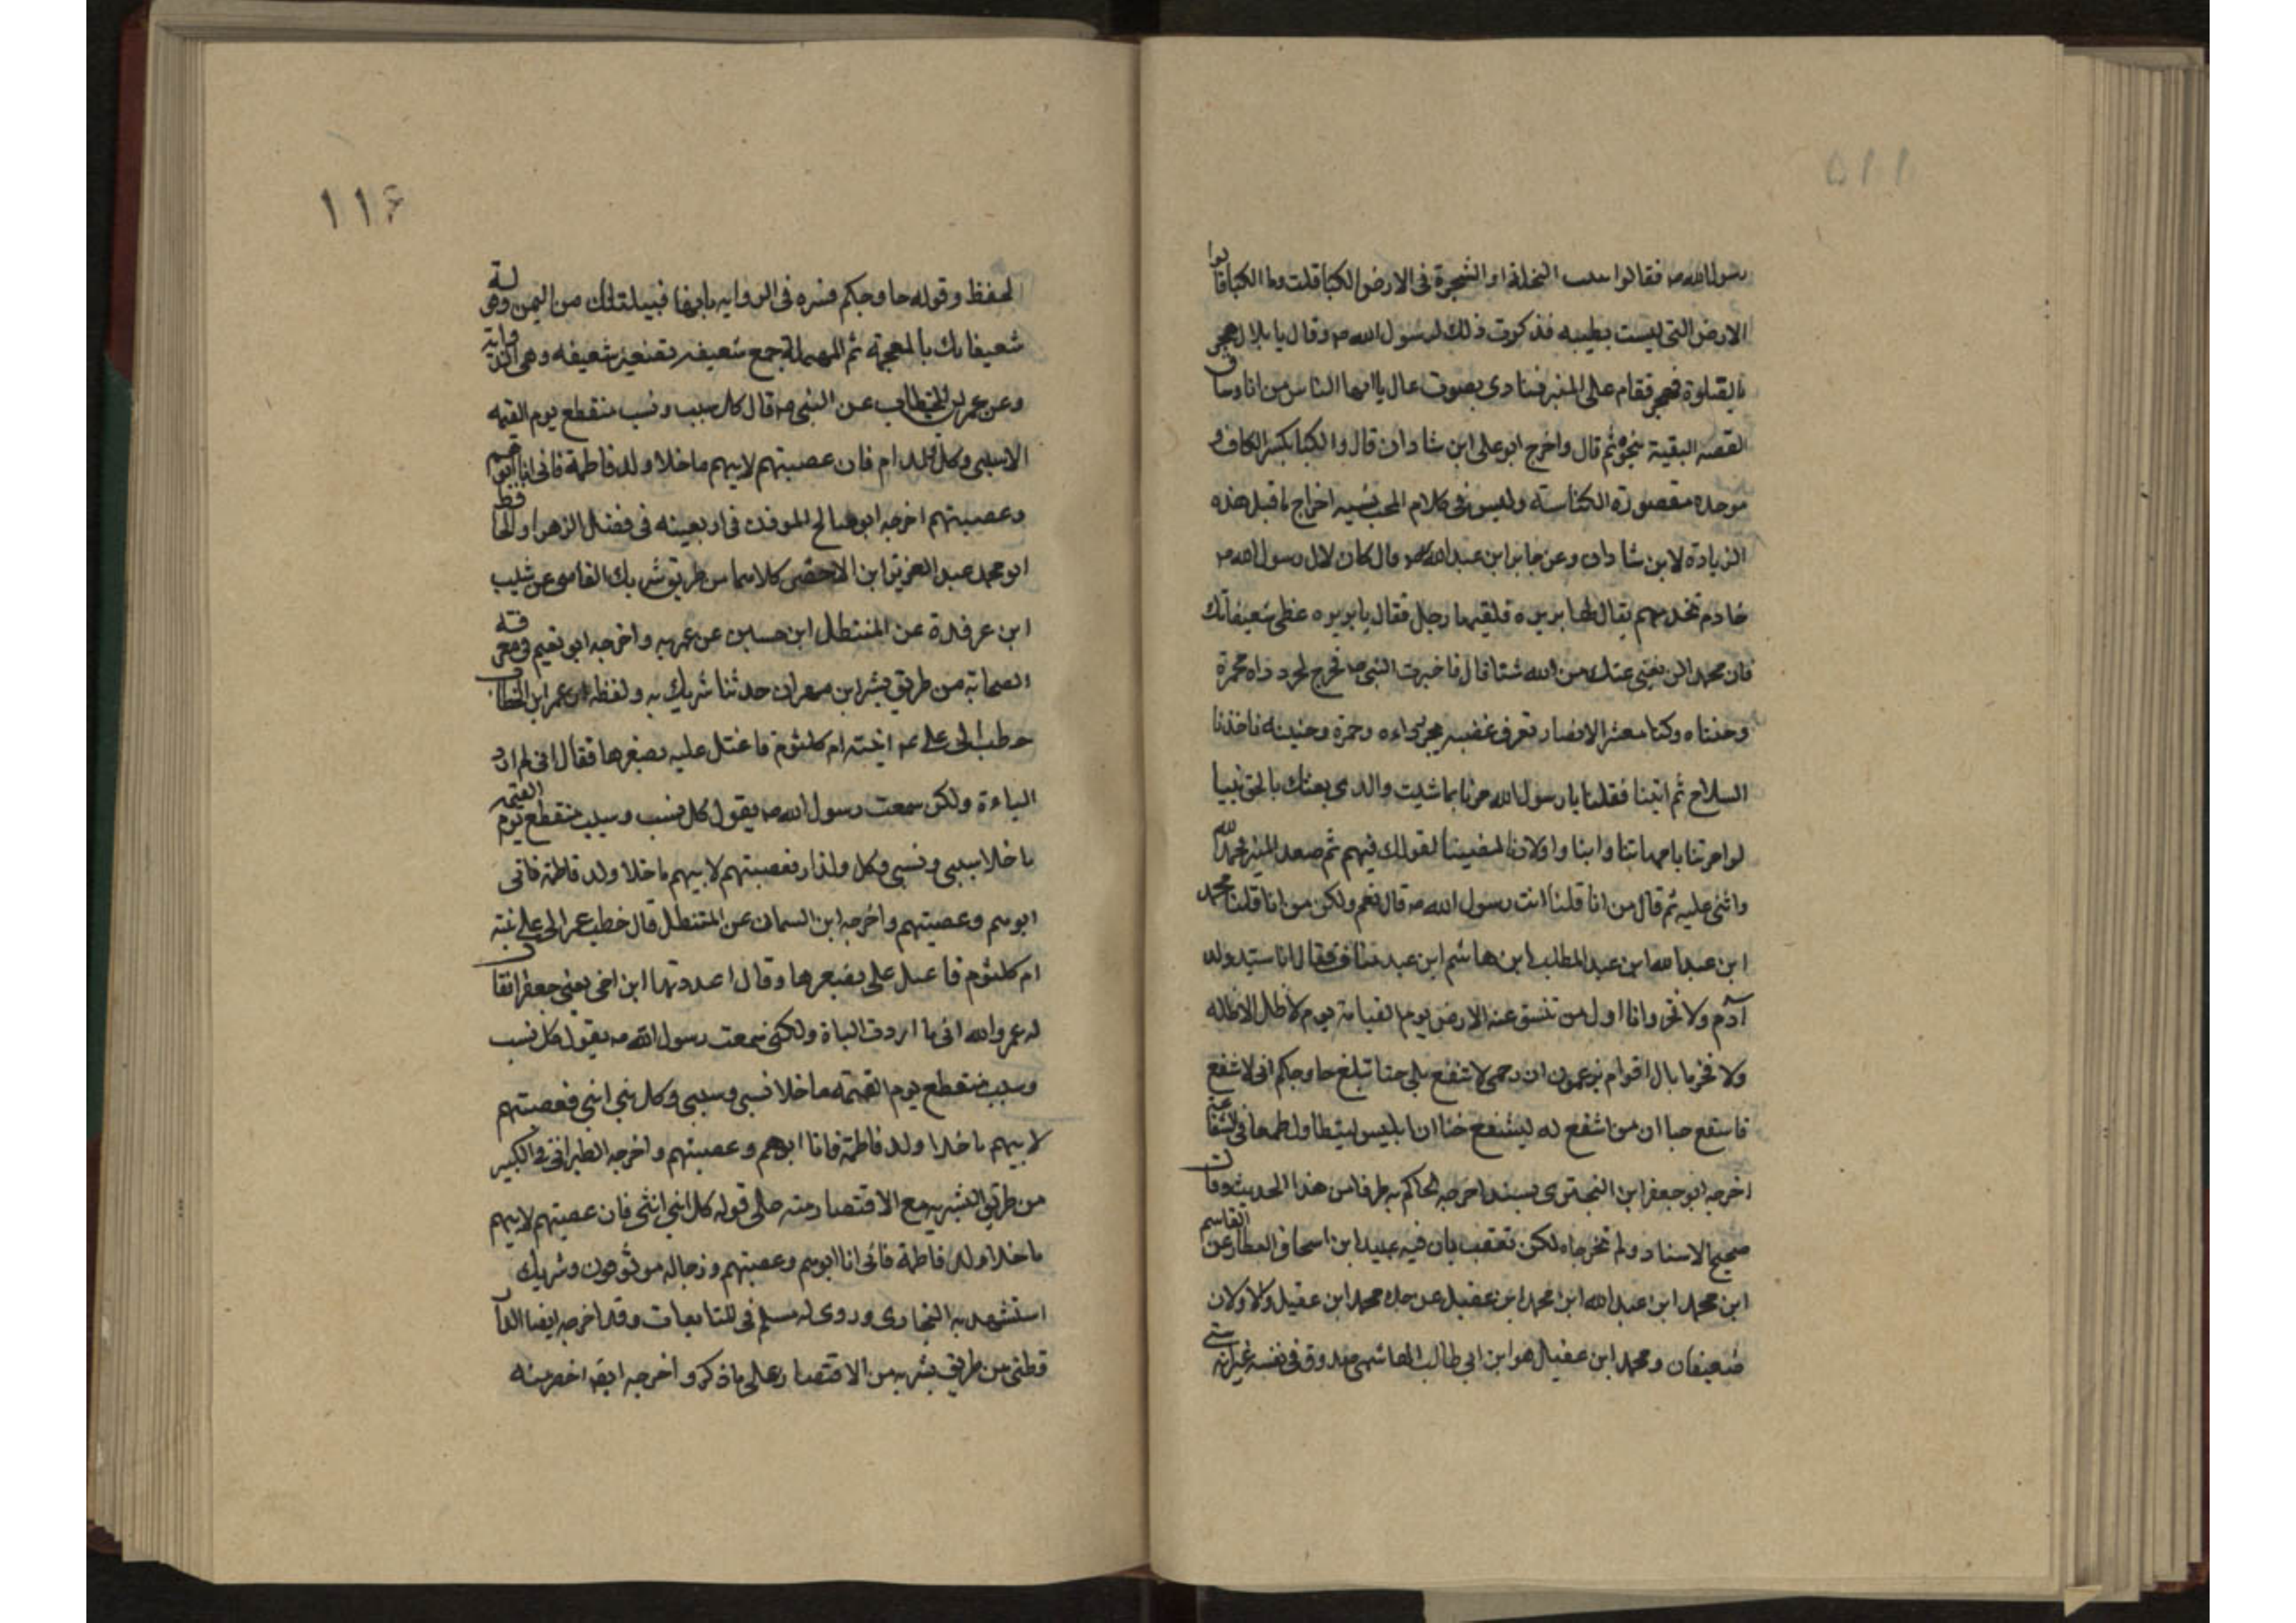 رسول الله ص فقالوا النخلة او الشجرة فى الارض الكبا قلت وما الكبا قالوا
الارض التى ليست بطيبه فذكرت ذلك لرسول الله ص وقال يا بلال هجر
بالصلوة فهجر فقام على المنبر فنادى بصوت عال يا ايها الناس من انا وساق
القصه البقية بنحوه ثم قال واخرج ابو على ابن شادان قال والكبا بكسر الكاف و
موحدة مقصورة الكناسة وليس فى كلام المحب نسبه اخراج ما قبل هذه
الزيادة لابن شادان وعن جابر ابن عبد الله قال كان لال رسول الله ص
خادم تخدمهم يقال لها بريره فلقيها رجل فقال يا بريره غطى شعيفاتك
فان محمد الن يغنى عنك من الله شئا قال فاخبرت النبى ص فخرج يجرد داه محمرة
وجنتاه وكنا معشر الانصار نعرف غضبه بجر رداءه وحمرة وجنيته فاخذنا
السلاح ثم اتينا فقلنا يا رسول الله مرنا بما شئت والذى بعثك بالحق نبيا
لو امرتنا بامهاتنا وابنا واولادنا لمضينا لقولك فيهم ثم صعد المنبر فحمد الله
واثنى عليه ثم قال من انا قلنا انت رسول الله ص قال نعم ولكن من انا قلنا محمد
ابن عبد الله ابن عبد المطلب ابن هاشم ابن عبد مناف فقال انا سيد ولد
آدم ولا فخر وانا اول من تنشق عنه الارض يوم القيامة يوم لا ظل الا ظله
ولا فخر ما بال اقوام يزعمون ان رحمى لا تنفع بلى حتا تبلغ حا وحكم انى لاشفع
فاشفع حتا ان من اشفع له ليشفع حتا ان ابليس ليتطاول طمعا فى الشفاعة
اخرجه ابو جعفر ابن البخترى بسند اخرجه الحاكم به طرفا من هذا الحديث وقال
صحيح الاسناد ولم تخرجاه لكن تعقب بان فيه عبيد ابن اسحاق العطار عن القاسم
ابن محمد ابن عبد الله ابن محمد ابن عقيل عن جده محمد ابن عقيل والاولان
ضعيفان ومحمد ابن عقيل هو ابن ابى طالب الهاشمى صدوق فى نفسه غير انه سئ
لحفظ وقوله حا وحكم فسره فى الروايه بانها قبيلتان من اليمن وقوله
شعيفاتك بالمعجمة ثم المهملة جمع شعيفه تصغير شعفه وهى الذوابة
وعن عمر بن الخطاب عن النبى ص قال كل سبب ونسب منقطع يوم القيمه
الا سببى وكل ولد ام فان عصبتهم لابيهم ما خلا ولد فاطمة فانى انا ابوهم
وعصبتهم اخرجه ابو صالح الموذن فى اربعينه فى فضل الزهرا والحافظ
ابو محمد عبد العزيز ابن الاخضر كلاهما من طريق شريك القاضى عن شبيب
ابن عرفدة عن المستطل ابن حسين عن عمر به واخرجه ابو نعيم فى معرفة
الصحابة من طريق بشر ابن مهران حدثنا شريك به ولفظه ان عمر ابن الخطاب
خطب الى على ع ابنته ام كلثوم فاعتل عليه بصغرها فقال انى لم ارد
الباءة ولكن سمعت رسول الله ص يقول كل نسب وسبب منقطع يوم القيمه
ما خلا سببى ونسبى وكل ولد ار فعصبتهم لابيهم ما خلا ولد فاطمة فانى
ابوهم وعصبتهم واخرجه ابن السمان عن المستطل قال خطب عمر الى على ابنته
ام كلثوم فاعتل على بصغرها وقال اعددتها ابن اخى يعنى جعفر افقال
له عمر والله انى ما اردت الباة ولكنى سمعت رسول الله ص يقول كل نسب
وسبب منقطع يوم القيمه ما خلا نسبى وسببى وكل بنى انثى فعصبتهم
لابيهم ما خلا ولد فاطمة فانا ابوهم وعصبتهم واخرجه الطبرانى فى الكبير
من طريق بشر به مع الاقتصار منه على قوله كل بنى انثى فان عصبتهم لابيهم
ما خلا ولد فاطمة فانى انا ابوهم وعصبتهم ورجاله موثوقون وشريك
استشهد به البخارى وروى له مسلم فى المتابعات وقد اخرجه ايضا الدار
قطنى من طريق بشر به من الاقتصار على ما ذكر واخرجه ايضا اخصر منه
١١٦